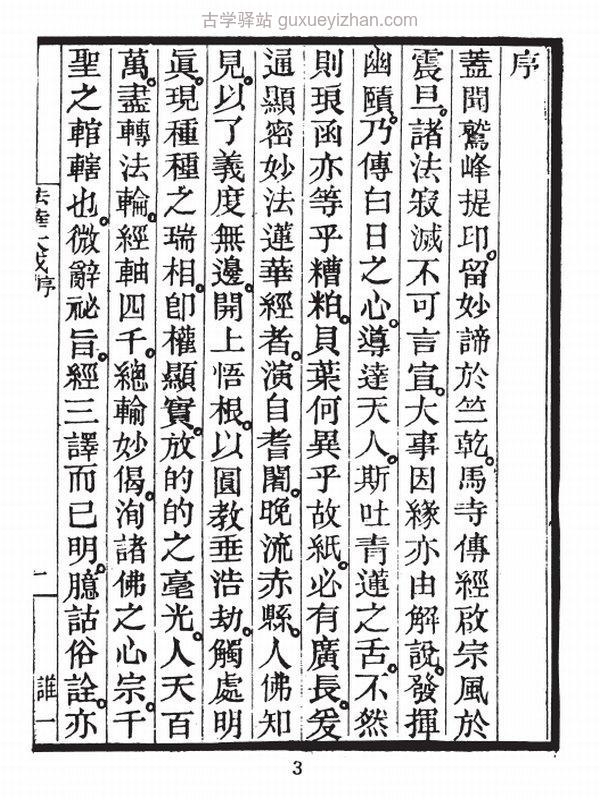 古学驿站 guxueyizhan.com
序
蓋聞鷲峰提印。留妙諦於竺乾。馬寺傳經啟宗風於
震旦。諸法寂滅不可言宣。大事因緣亦由解說。發揮
幽賾。乃傳白日之心。導達天人。斯吐青蓮之舌。不然
則琅函亦等乎糟粕。貝葉何異乎故紙。必有廣長。爰
逼顯密妙法蓮華經者。演自耆闍。晚流赤縣。人佛知
見。以了義度無邊。開上悟根。以圓教垂浩劫。觸處明
眞。現種種之瑞相。卽權顯實。放的的之毫光。人天百
萬。盡轉法輪。經軸四千。總輸妙偈。洵諸佛之心宗。千
聖之輨轄也。微辭祕旨。經三譯而已明。臆詁俗詮。亦
法華大成序
一
誰一
3